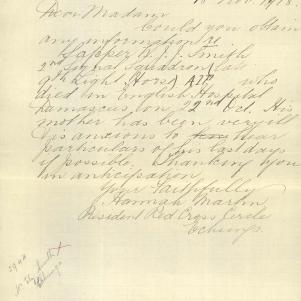 Nov. 1918.
Dear Madam,
Could you obtain
any information of
Sapper W. J. Smith
2nd Signal Squadron late
9th Light Horse A.I.F. who
died in English Hospital
Damascus on 22nd Oct. His
mother has been very ill
& is anxious to hear
particulars of his last days
if possible. Thanking you
in anticipation
Your Faithfully
Hannah Martin
Resident Red Cross Circle
Echunga.
Smith
Echunga